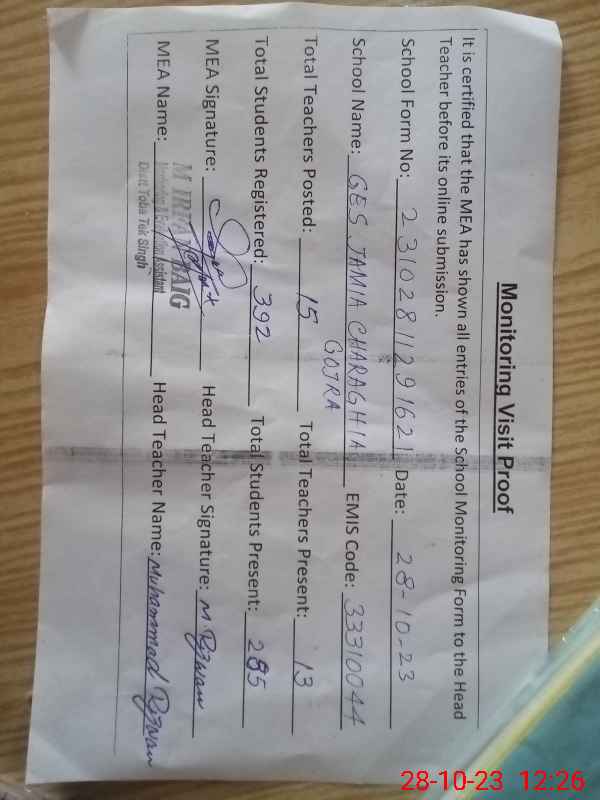 Monitoring Visit Proof
It is certified that the MEA has shown all entries of the School Monitoring Form to the Head
Teacher before its online submission.
School Form No: 23102811291621 Date: 28-10-23
School Name: GES JAMIA CHARAGHIA EMIS Code: 33310044
GOJRA
Total Teachers Posted: 15 Total Teachers Present: 13
Total Students Registered: 392 Total Students Present: 285
MEA Signature: Head Teacher Signature: M Rizwan
MEA Name: M IRFAN BAIG Head Teacher Name: Muhammad Rizwan
Monitoring & Evaluation Assistant
Distt Toba Tek Singh
28-10-23 12:26